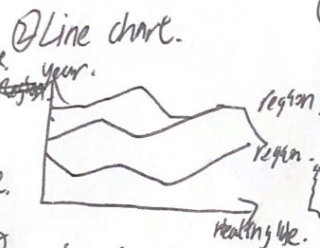 ② Line chart.
year.
region.
region.
Healthy life.